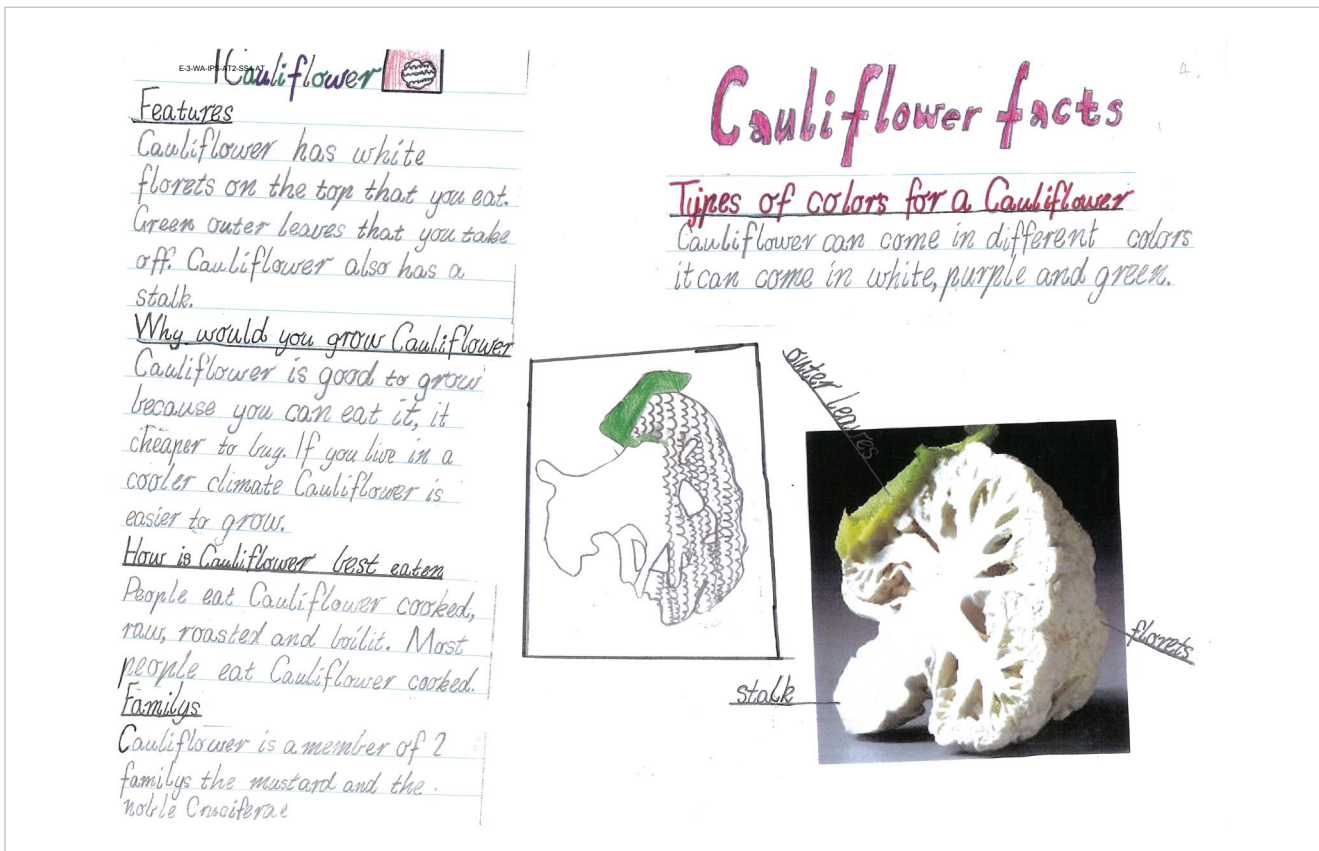 E-3-WA-IPS-AT2-SS4-AT
Cauliflower
Features
Cauliflower has white
florets on the top that you eat.
Green outer leaves that you take
off. Cauliflower also has a
stalk.
Why would you grow Cauliflower
Cauliflower is good to grow
because you can eat it, it
cheaper to buy. If you live in a
cooler climate Cauliflower is
easier to grow.
How is Cauliflower best eaten
People eat Cauliflower cooked,
raw, roasted and boilit. Most
people eat Cauliflower cooked.
Familys
Cauliflower is a member of 2
familys the mustard and the
noble Cruciferae
4.
Cauliflower facts
Types of colors for a Cauliflower
Cauliflower can come in different colors
it can come in white, purple and green.
outer leaves
florets
stalk